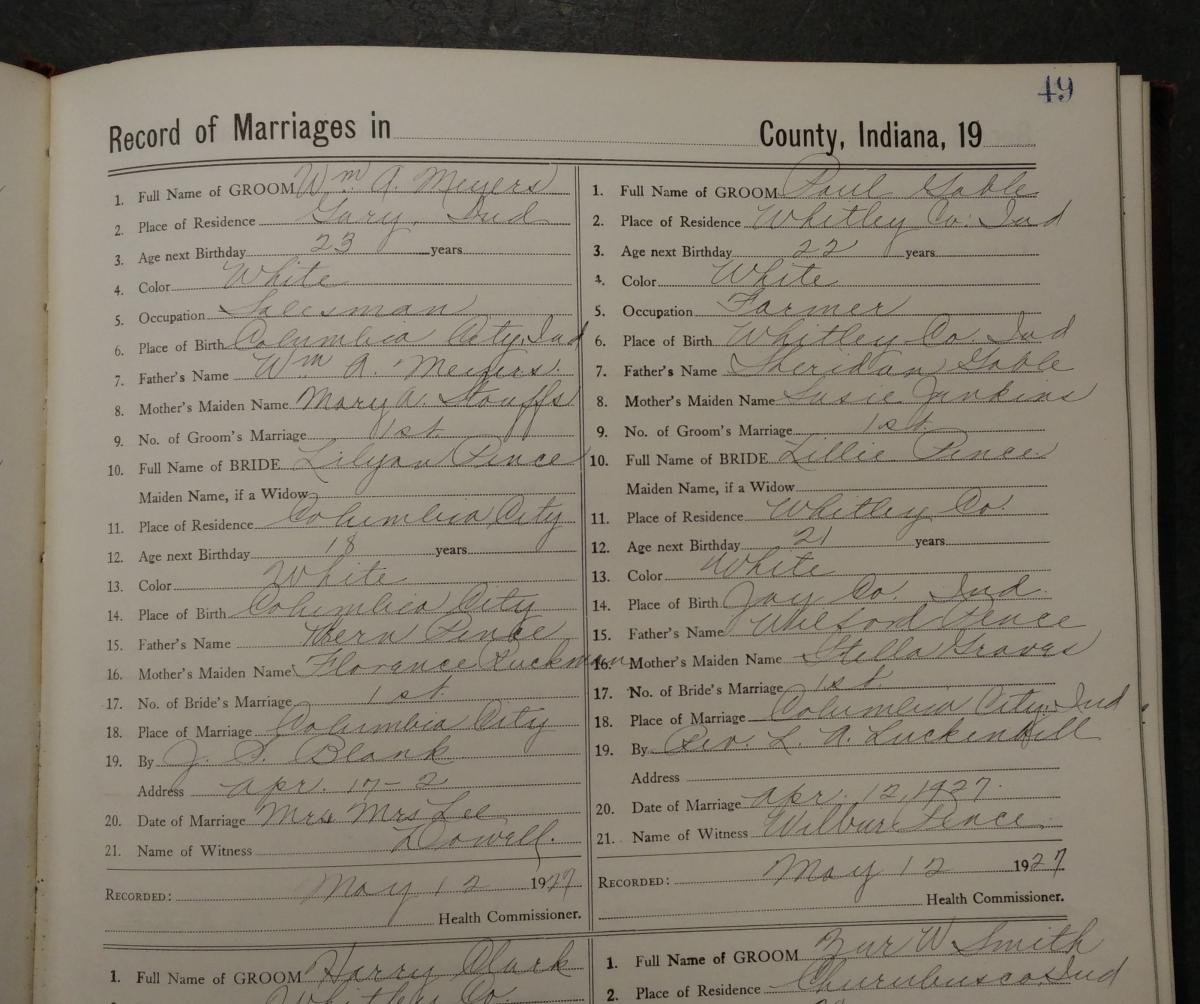 49
Record of Marriages in County, Indiana, 19
1. Full Name of GROOM Wm A. Meyers
2. Place of Residence Gary, Ind
3. Age next Birthday 23 years
4. Color White
5. Occupation Salesman
6. Place of Birth Columbia City, Ind
7. Father's Name Wm A. Meyers
8. Mother's Maiden Name Mary A. Stouffs
9. No. of Groom's Marriage 1st
10. Full Name of BRIDE Lilyan Pence
Maiden Name, if a Widow
11. Place of Residence Columbia City
12. Age next Birthday 18 years
13. Color White
14. Place of Birth Columbia City
15. Father's Name Pence
16. Mother's Maiden Name Florence Ruckman
17. No. of Bride's Marriage 1st
18. Place of Marriage Columbia City
19. By J. S. Blank
Address Apr. 17-2
20. Date of Marriage Mrs Mrs Lee
21. Name of Witness Dowell.
RECORDED: May 12 1927
Health Commissioner.
1. Full Name of GROOM Harry Clark
Whitley Co.
1. Full Name of GROOM Paul Gable
2. Place of Residence Whitley Co. Ind
3. Age next Birthday 22 years
4. Color White
5. Occupation Farmer
6. Place of Birth Whitley Co. Ind
7. Father's Name Sheridan Gable
8. Mother's Maiden Name Susie Jenkins
9. No. of Groom's Marriage 1st
10. Full Name of BRIDE Lillie Pence
Maiden Name, if a Widow
11. Place of Residence Whitley Co.
12. Age next Birthday 21 years
13. Color White
14. Place of Birth Jay Co. Ind.
15. Father's Name Pence
16. Mother's Maiden Name Stella Graves
17. No. of Bride's Marriage 1st
18. Place of Marriage Columbia City, Ind
19. By Rev. L. A. Luckenbill
Address
20. Date of Marriage Apr. 12, 1927.
21. Name of Witness Wilbur Pence
RECORDED: May 12 1927
Health Commissioner.
1. Full Name of GROOM W Smith
2. Place of Residence Churubusco, Ind